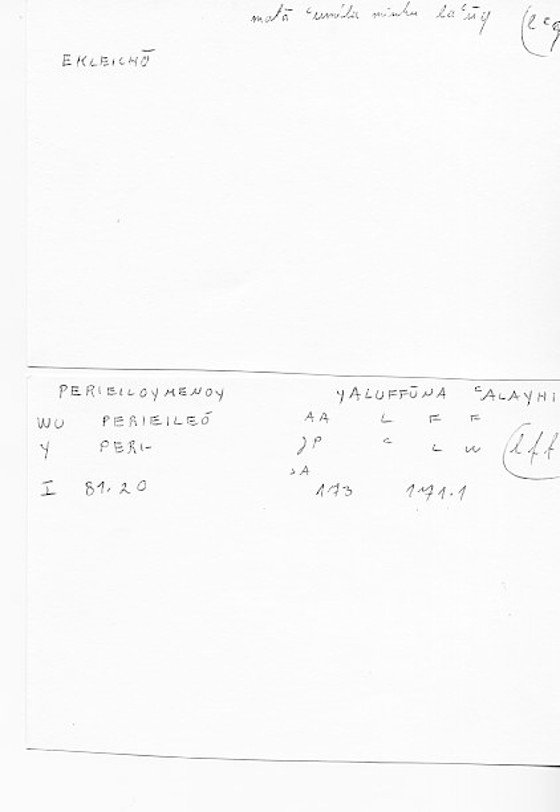 matā ʿumila minhu laʿūq (lʿq
EKLEICHŌ
PERIEILOYMENOY YALUFFŪNA ʿALAYHI
WU PERIEILEŌ AA L F F
Y PERI- JP ʿ L W (lff
SA
I 81.20 173 171.1